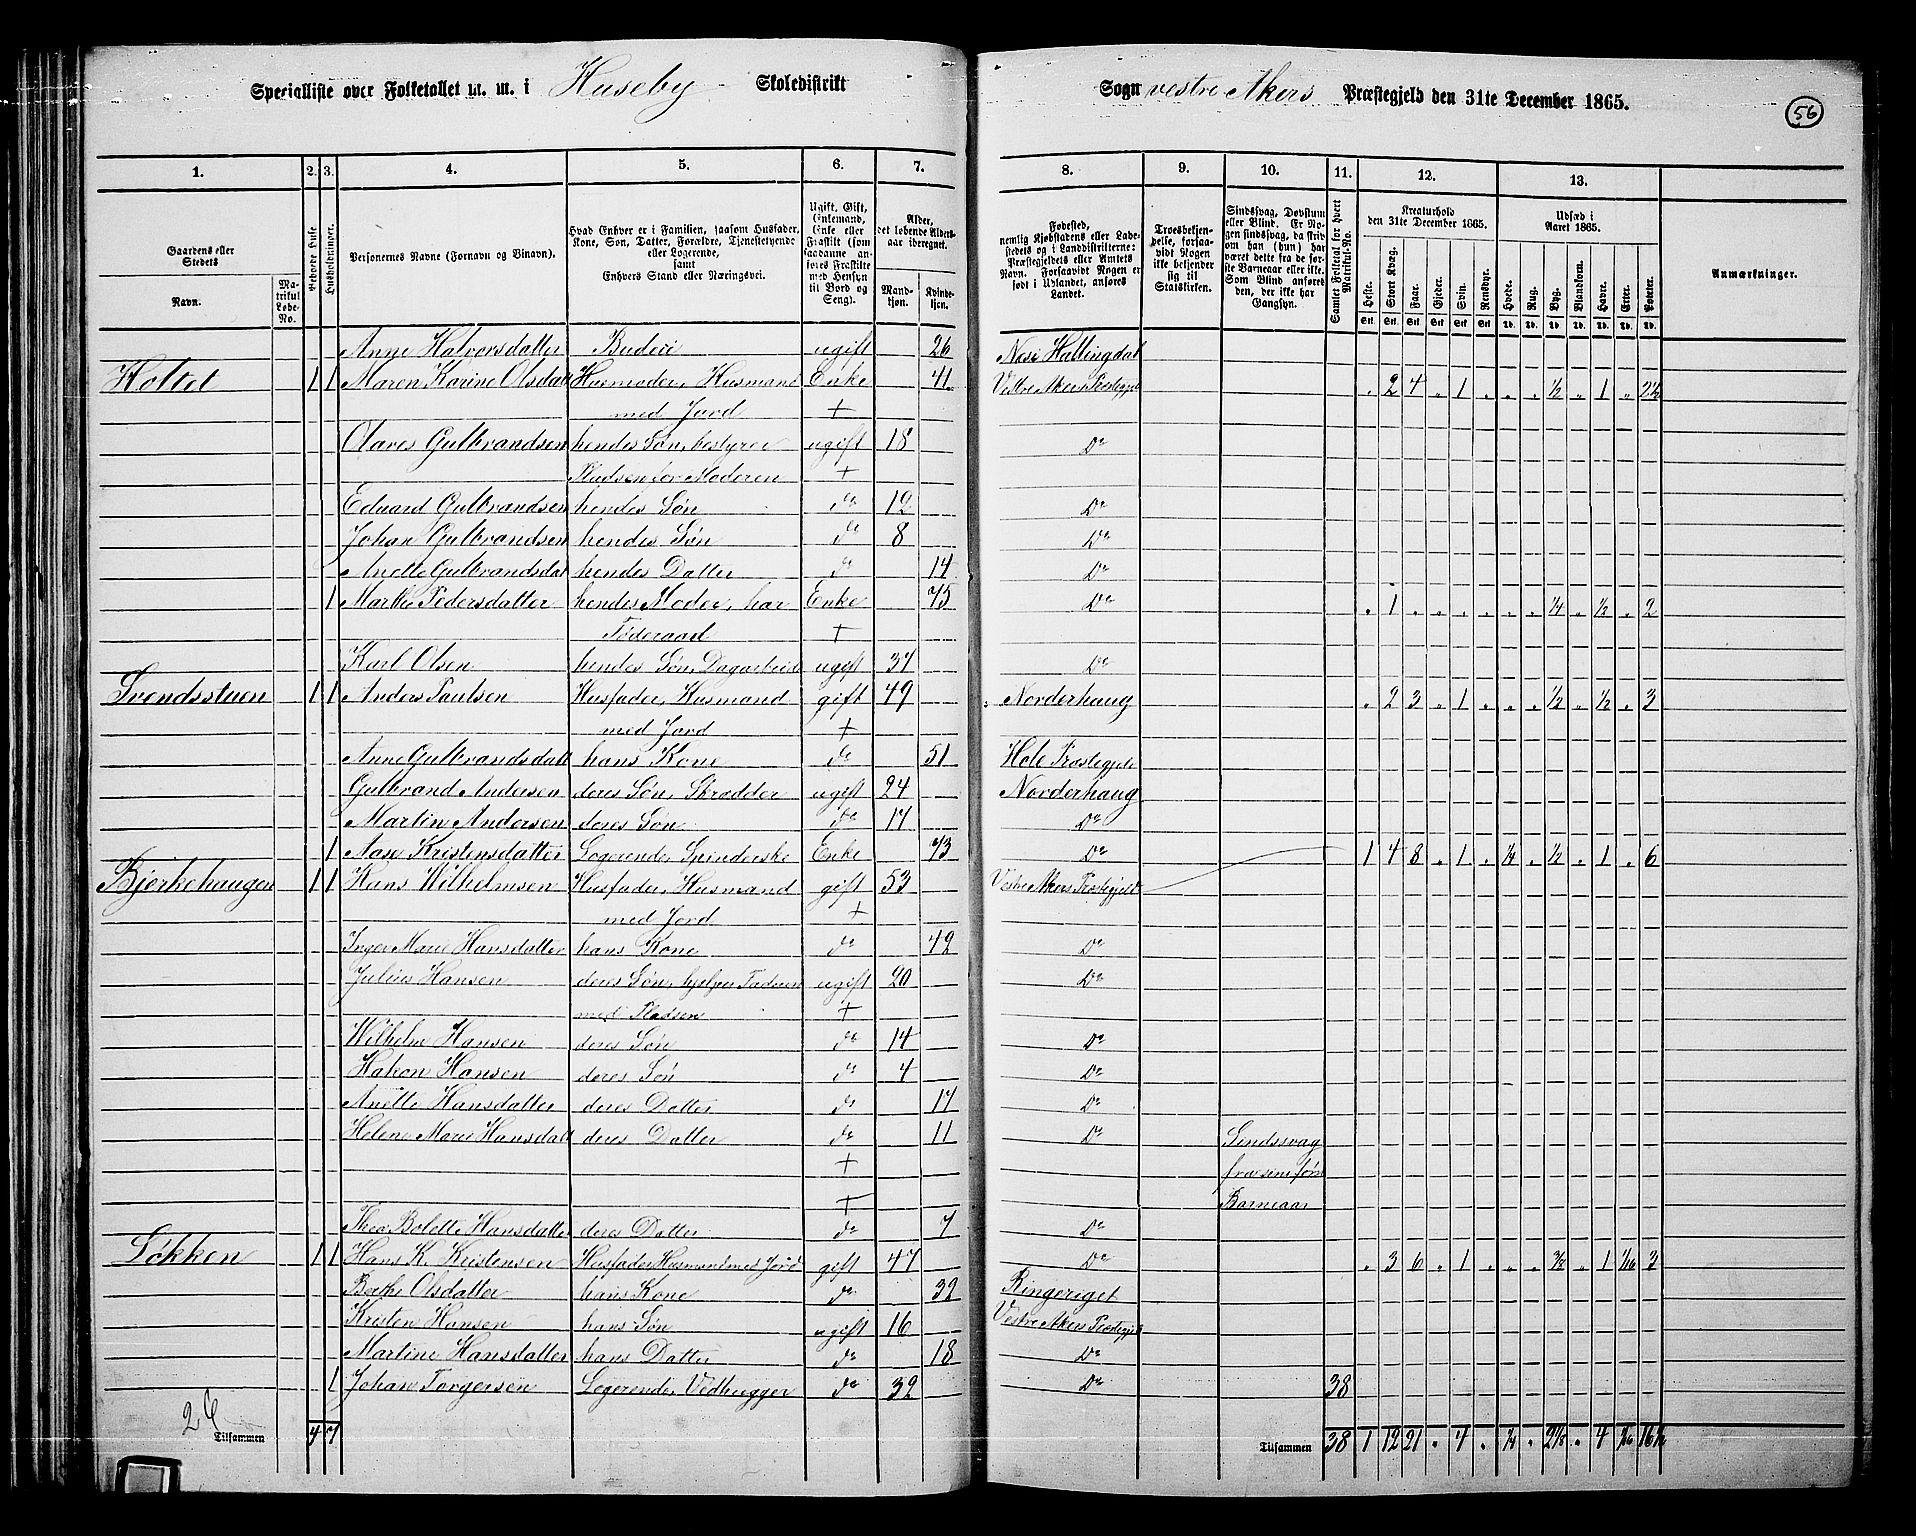 Specialliste over Folketallet m. m. i Huseby Skoledistrikt Sogn vestre Akers Præstegjeld den 31te December 1865.
56
1. 2. 3. 4. 5. 6. 7. 8. 9. 10. 11. 12. 13.
Gaardens eller Stedets Navn. Matrikul Løbe-No.
Beboede Huse.
Husholdninger.
Personernes Navne (Fornavn og Binavn).
Hvad Enhver er i Familien, saasom Husfader, Kone, Søn, Datter, Forældre, Tjenestetyende eller Logerende, samt Enhvers Stand eller Næringsvei.
Ugift, Gift, Enkemand, Enke eller Fraskilt (som saadanne anføres Fraskilte med Hensyn til Bord og Seng).
Alder, det løbende Aldersaar iberegnet. Mandkjøn. Kvindekjøn.
Fødested, nemlig Kjøbstadens eller Ladestedets og i Landdistrikterne: Præstegjeldets eller Amtets Navn. Forsaavidt Nogen er født i Udlandet, anføres Landet.
Troesbekjendelse, forsaavidt Nogen ikke bekjender sig til Statskirken.
Sindssvag, Døvstum eller Blind. Er Nogen sindssvag, da skrives om han (hun) har været dette fra de første Barneaar eller ikke. Som Blind anføres den, der ikke har Gangsyn.
Samlet Folketal for hvert Matrikul-No.
Kreaturhold den 31te December 1865. Heste. Stort Kvæg. Faar. Gjeder. Svin. Rensdyr.
Udsæd i Aaret 1865. Hvede. Rug. Byg. Blandkorn. Havre. Erter. Poteter.
Anmærkninger.
Anne Halvorsdatter Budeie ugift 26 Næs i Hallingdal
Holtet 1 1 Maren Karine Olsdatt Husmoder, Husmand Enke 41 Vestre Akers Præstegjel „ 2 4 „ 1 „ „ „ ½ „ 1 „ 2½
med Jord +
Olaves Gulbrandsen hendes Søn, bestyrer ugift 18 Do
Pladsen for Moderen +
Eduard Gulbrandsen hendes Søn do 12 Do
Johan Gulbrandsen hendes Søn do 8 Do
Anette Gulbrandsdat hendes Datter do 14 Do
1 Marthe Pedersdatter hendes Moder, har Enke 75 Do „ 1 „ „ „ „ „ „ ¼ „ ½ „ 2
Føderaad +
Karl Olsen hendes Søn, Dagarbeid ugift 37 Do
Svendsstuen 1 1 Anders Paulsen Husfader, Husmand gift 49 Norderhaug „ 2 3 „ 1 „ „ „ ½ „ ½ „ 3
med Jord +
Anne Gulbrandsdatt hans Kone do 51 Hole Præstegjeld
Gulbrand Andersen deres Søn, Skrædder ugift 24 Norderhaug
Martin Andersen deres Søn do 17 Do
1 Aase Kristensdatter Logerende, Spinderske Enke 73 Do 1 4 8 „ 1 „ ¼ „ ½ „ 1 „ 6
Bjerkehaugen 1 1 Hans Wilhelmsen Husfader, Husmand gift 53 Vestre Akers Præstegjeld
med Jord +
Inger Marie Hansdatter hans Kone do 42 Do
Julius Hansen deres Søn, hjelper Faderen ugift 20 Do
med Pladsen +
Wilhelm Hansen deres Søn do 14 Do
Hakon Hansen deres Søn do 4 Do
Anette Hansdatter deres Datter do 17 Do
Helene Marie Hansdatt deres Datter do 11 Do Sindssvag
+ fra sine før
+ Barneaar
Thea Bolette Hansdatter deres Datter do 7 Do
Løkken 1 1 Hans K. Kristensen Husfader Husmand med Jord gift 47 Do „ 3 6 „ 1 „ „ „ „ 1 1/16 3
Berthe Olsdatter hans Kone do 39 Ringeriget
Kristen Hansen hans Søn ugift 16 Vestre Akers Præstegjeld
Martine Hansdatter hans Datter do 18 Do
1 Johan Torgersen Logerende, Vedhugger do 32 Do 38
Tilsammen 4 7 Tilsammen 38 1 12 21 „ 4 „ ¼ „ „ 4 1/16 16½